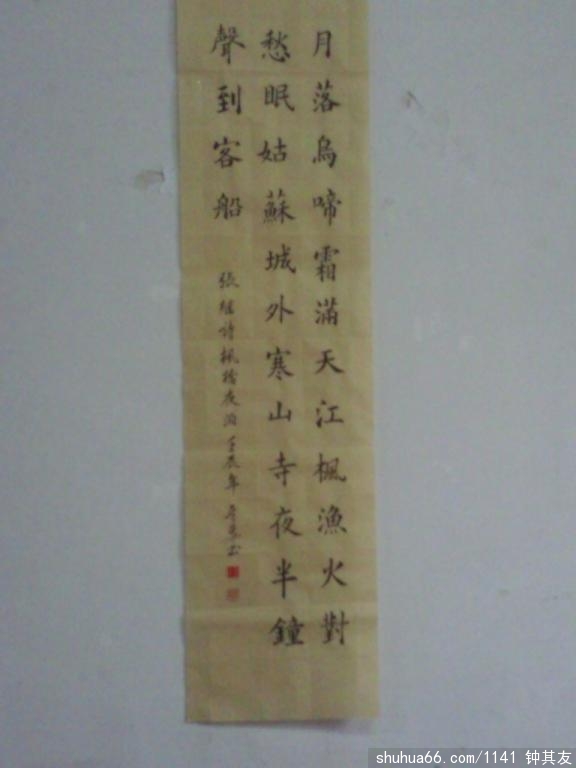 月落烏啼霜滿天江楓漁火對
愁眠姑蘇城外寒山寺夜半鐘
聲到客船
張継詩楓橋夜泊壬辰年 書
shuhua66.com/1141 钟其友